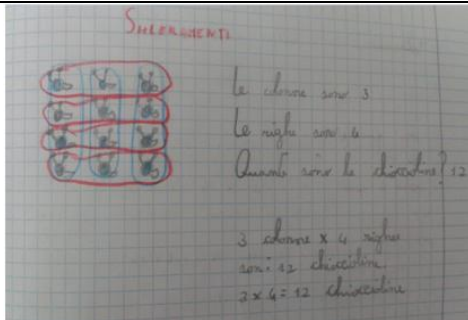 SCHIERAMENTI
Le colonne sono 3
Le righe sono 4
Quante sono le chioccioline? 12
3 colonne x 4 righe
sono: 12 chioccioline
3 x 4 = 12 chioccioline